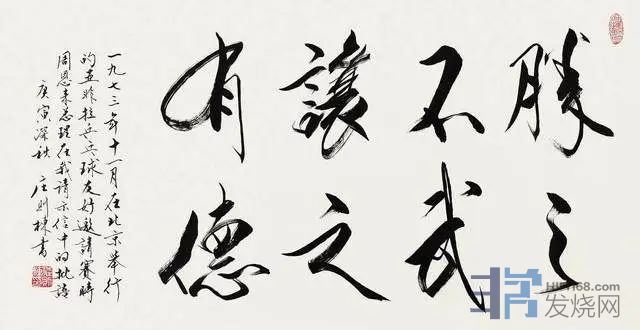 勝之
不武
讓之
有德
一九七三年十一月在北京舉行
的亚非拉乒乓球友好邀請賽時
周恩来总理在我請示信中的批語
庚寅深秋 庄则棟書
HIFI168.com
发烧网